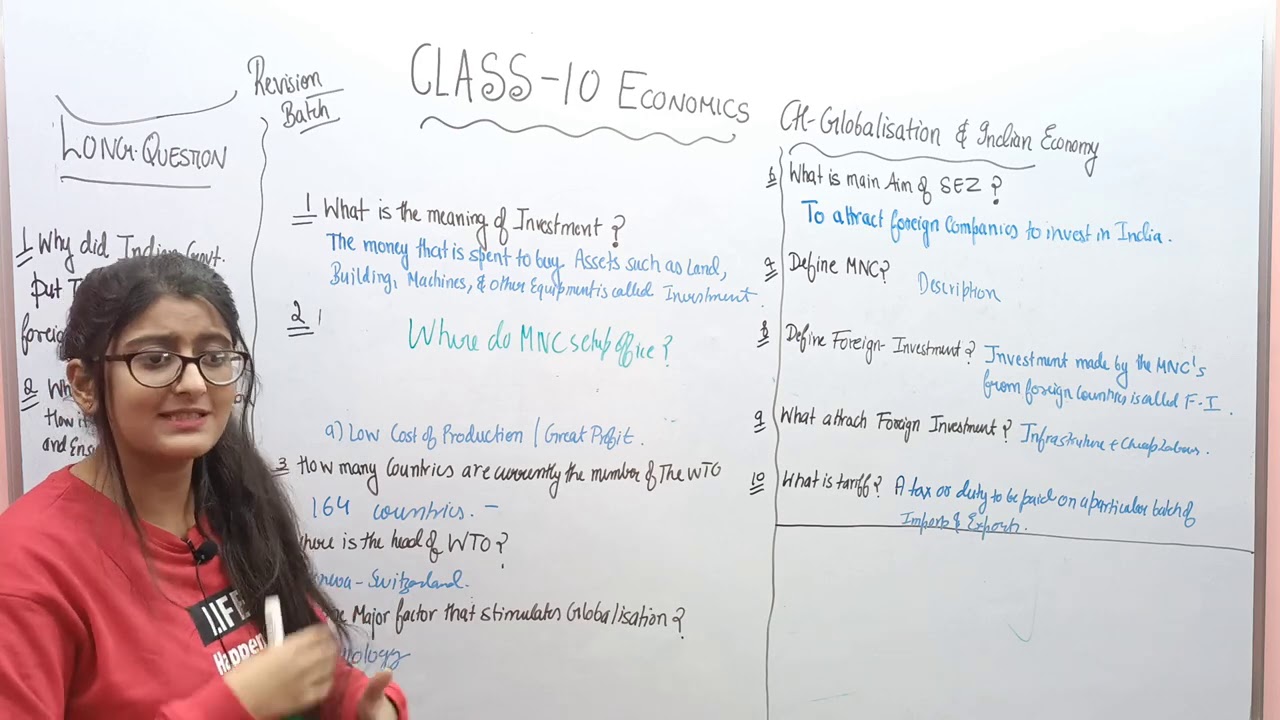 Revision
Batch
CLASS-10 ECONOMICS
CH-Globalisation & Indian Economy
LONG-QUESTION
1 Why did Indian Govt.
put
foreig
2
How it
and Ens
1 What is the meaning of Investment?
The money that is spent to buy Assets such as Land,
Building, Machines, & other Equipment is called Investment.
2
Where do MNC setup office?
a) Low Cost of Production / Great Profit.
3 How many Countries are currently the number of The WTO
164 countries. -
here is the head of WTO?
neva - Switzerland.
Major factor that stimulates Globalisation?
nology
6 What is main Aim of SEZ?
To attract foreign Companies to invest in India.
7 Define MNC? Description
8 Define Foreign-Investment? Investment made by the MNC's
from foreign Countries is called F-I.
9 What attrach Foreign Investment? Infrastruture + Cheap Labour.
10 What is tariff? A tax or duty to be paid on a particular batch of
Imports & Exports.
LIFE
Happen